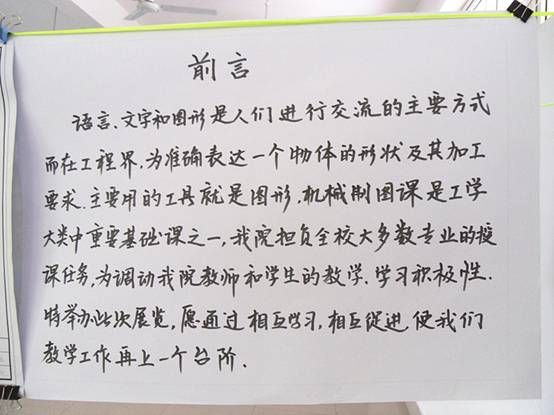 前言
语言、文字和图形是人们进行交流的主要方式
而在工程界,为准确表达一个物体的形状及其加工
要求.主要用的工具就是图形.机械制图课是工学
大类中重要基础课之一,我院担负全校大多数专业的授
课任务,为调动我院教师和学生的教学.学习积极性.
特举办此次展览,愿通过相互学习,相互促进,使我们
教学工作再上一个台阶.